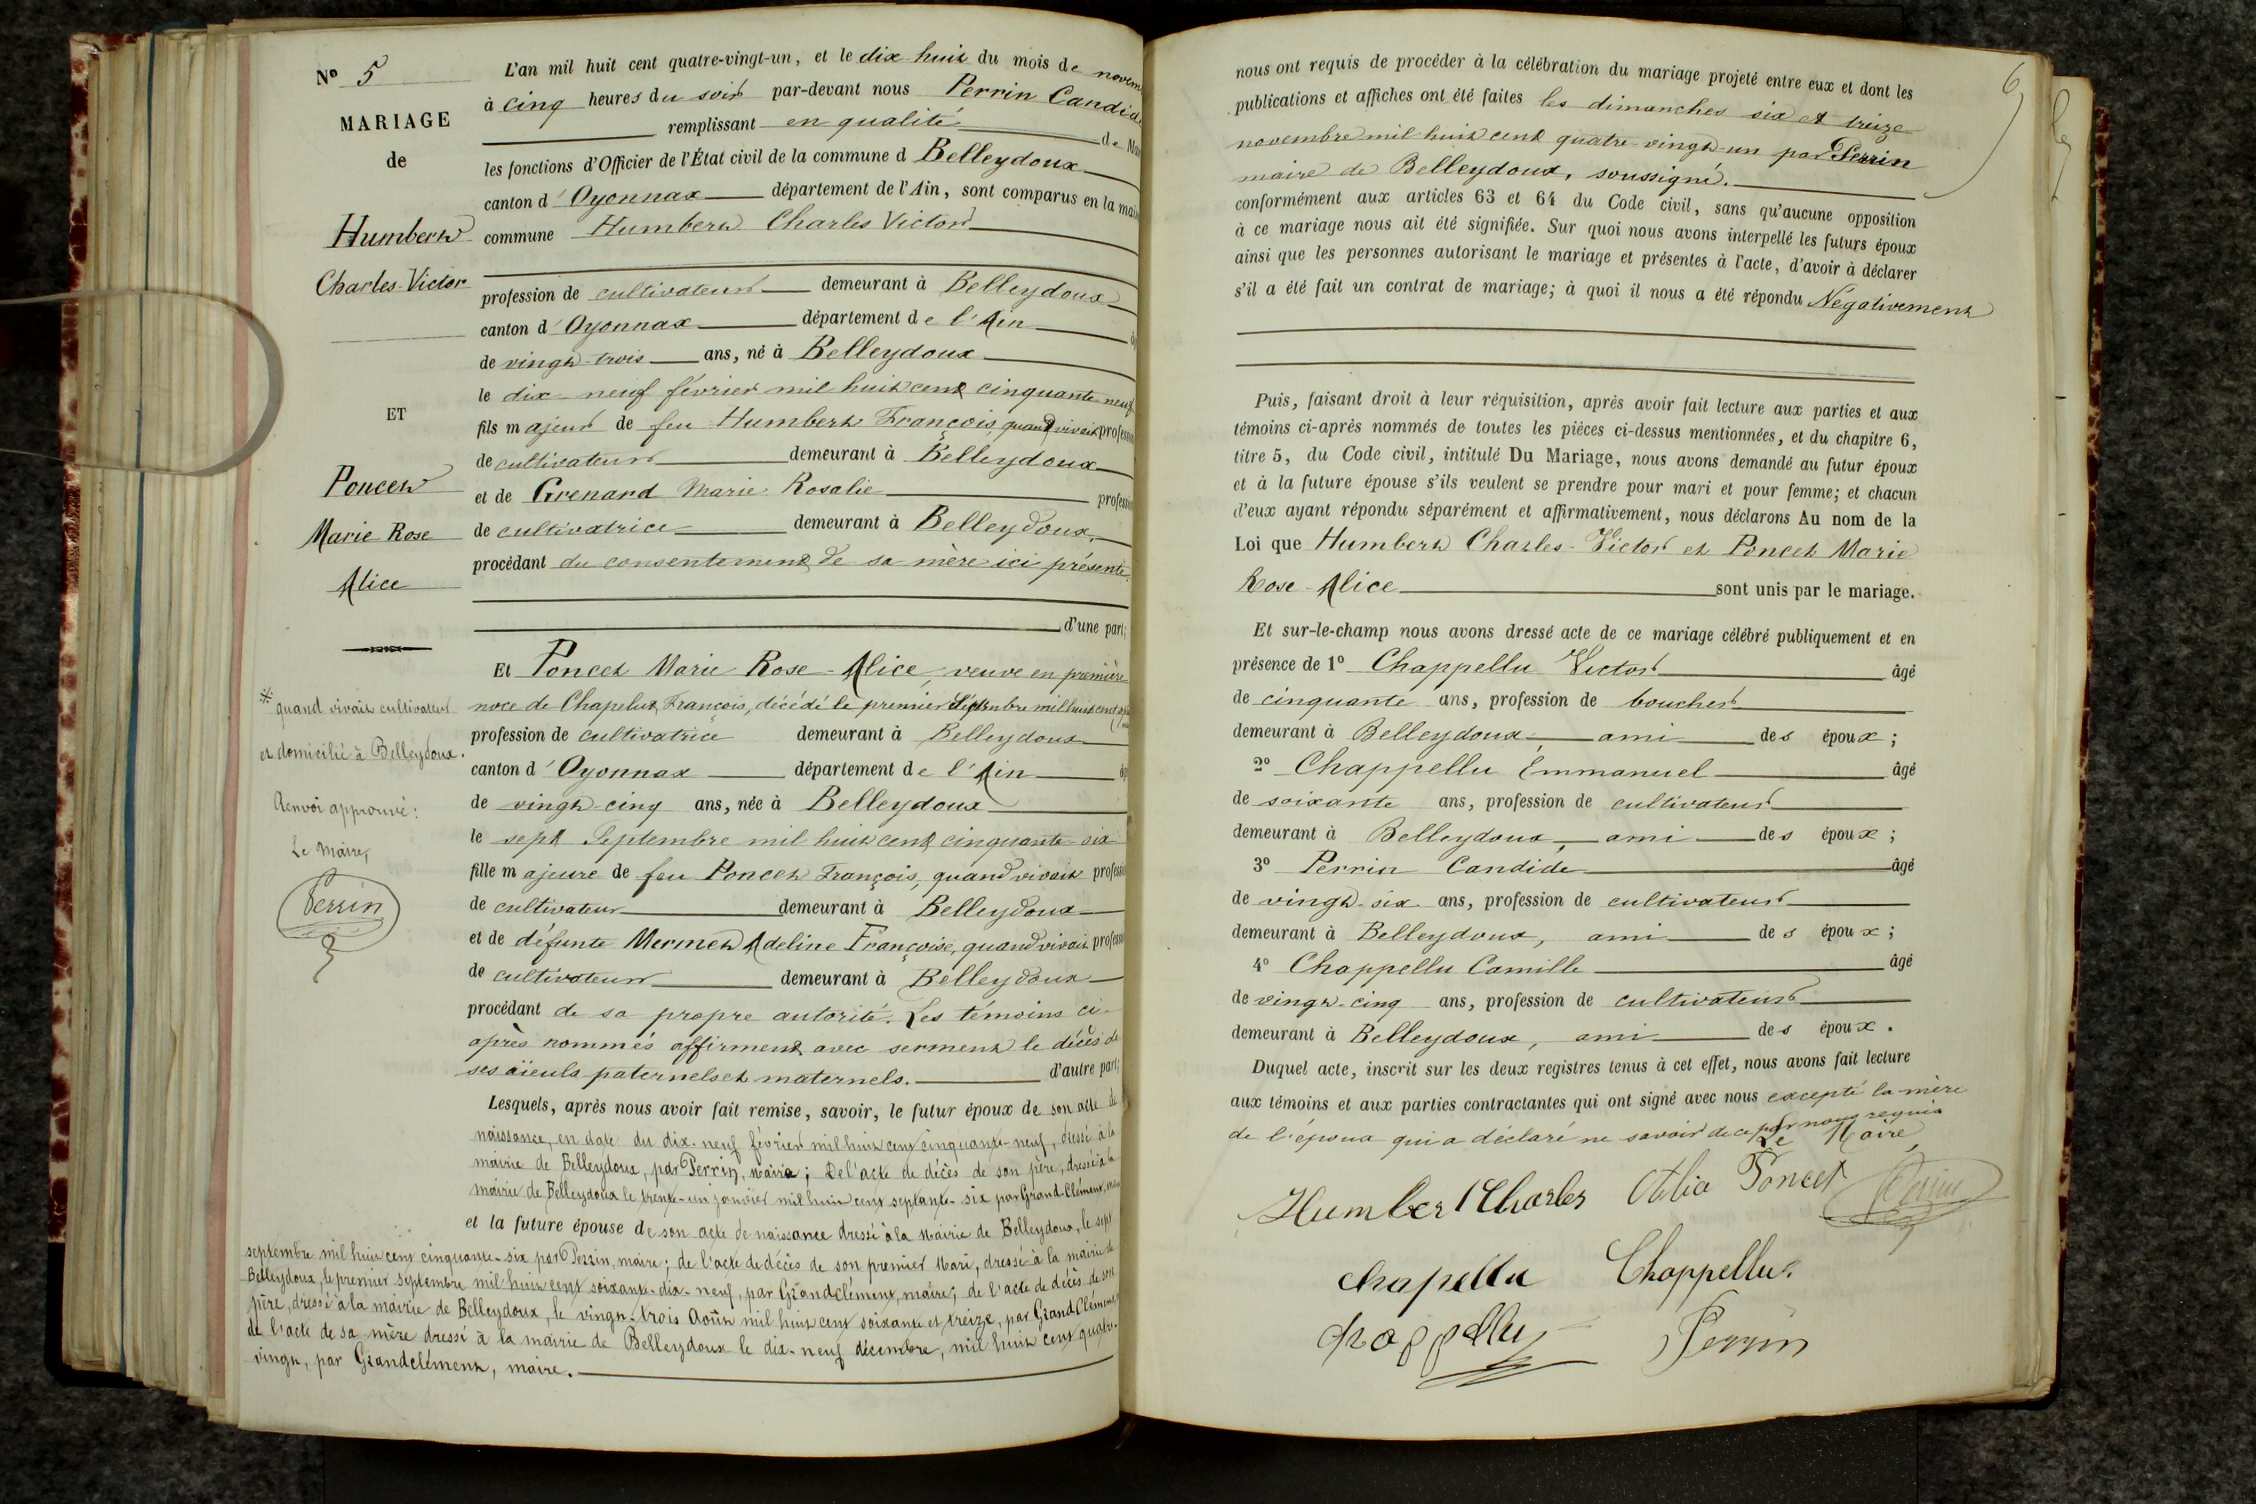 Nº 5
MARIAGE
de
Humbert
Charles-Victor
ET
Poncet
Marie Rose
Alice
* quand vivait cultivateur
et domicilié à Belleydoux.
Renvoi approuvé :
Le Maire,
Perrin
L'an mil huit cent quatre-vingt-un, et le dix huit du mois de novem
à cinq heures du soir par-devant nous Perrin Candide
remplissant en qualité de
les fonctions d'Officier de l'État civil de la commune d Belleydoux
canton d'Oyonnax département de l'Ain, sont comparus en la
commune Humbert Charles Victor
profession de cultivateur demeurant à Belleydoux
canton d'Oyonnax département de l'Ain
de vingt-trois ans, né à Belleydoux
le dix-neuf février mil huit cent cinquante-neuf
fils majeur de feu Humbert François, quand vivait profession
de cultivateur demeurant à Belleydoux
et de Grenard Marie Rosalie profession
de cultivatrice demeurant à Belleydoux,
procédant du consentement de sa mère ici présente.
d'une part;
Et Poncet Marie Rose-Alice, veuve en première
noce de Chapelux François, décédé le premier septembre mil huit cent
profession de cultivatrice demeurant à Belleydoux
canton d'Oyonnax département de l'Ain
de vingt-cinq ans, née à Belleydoux
le sept Septembre mil huit cent cinquante-six
fille majeure de feu Poncet François, quand vivait profession
de cultivateur demeurant à Belleydoux
et de défunte Mermet Adeline Françoise, quand vivait profession
de cultivateur demeurant à Belleydoux
procédant de sa propre autorité. Les témoins ci-
après nommés affirment avec serment le décès de
ses aïeuls paternels et maternels. d'autre part;
Lesquels, après nous avoir fait remise, savoir, le futur époux de son acte de
naissance, en date du dix-neuf février mil huit cent cinquante-neuf, dressé à la
mairie de Belleydoux, par Perrin, Maire; De l'acte de décès de son père, dressé à la
mairie de Belleydoux le trente-un janvier mil huit cent septante-six par Grand-Clément,
et la future épouse de son acte de naissance dressé à la Mairie de Belleydoux, le sept
septembre mil huit cent cinquante-six par Perrin, maire; de l'acte de décès de son premier Mari, dressé à la mairie de
Belleydoux, le premier septembre mil huit cent soixante-dix-neuf, par Grandclément, maire; de l'acte de décès de son
père, dressé à la mairie de Belleydoux, le vingt-trois Août mil huit cent soixante et treize, par Grand Clément,
de l'acte de sa mère dressé à la mairie de Belleydoux le dix-neuf décembre, mil huit cent quatre-
vingt, par Grandclément, maire.
6
nous ont requis de procéder à la célébration du mariage projeté entre eux et dont les
publications et affiches ont été faites les dimanches six et treize
novembre mil huit cent quatre-vingt-un par Perrin
maire de Belleydoux, soussigné.
conformément aux articles 63 et 64 du Code civil, sans qu'aucune opposition
à ce mariage nous ait été signifiée. Sur quoi nous avons interpellé les futurs époux
ainsi que les personnes autorisant le mariage et présentes à l'acte, d'avoir à déclarer
s'il a été fait un contrat de mariage; à quoi il nous a été répondu Négativement
Puis, faisant droit à leur réquisition, après avoir fait lecture aux parties et aux
témoins ci-après nommés de toutes les pièces ci-dessus mentionnées, et du chapitre 6,
titre 5, du Code civil, intitulé Du Mariage, nous avons demandé au futur époux
et à la future épouse s'ils veulent se prendre pour mari et pour femme; et chacun
d'eux ayant répondu séparément et affirmativement, nous déclarons Au nom de la
Loi que Humbert Charles-Victor et Poncet Marie
Rose-Alice sont unis par le mariage.
Et sur-le-champ nous avons dressé acte de ce mariage célébré publiquement et en
présence de 1º Chappellu Victor âgé
de cinquante ans, profession de boucher
demeurant à Belleydoux, ami des époux;
2º Chappellu Emmanuel âgé
de soixante ans, profession de cultivateur
demeurant à Belleydoux, ami des époux;
3º Perrin Candide âgé
de vingt-six ans, profession de cultivateur
demeurant à Belleydoux, ami des époux;
4º Chappellu Camille âgé
de vingt-cinq ans, profession de cultivateur
demeurant à Belleydoux, ami des époux.
Duquel acte, inscrit sur les deux registres tenus à cet effet, nous avons fait lecture
aux témoins et aux parties contractantes qui ont signé avec nous excepté la mère
de l'époux qui a déclaré ne savoir de ce par nous requis
Le Maire,
Humbert Charles Poncet Perrin
Chapellu Chappellu
Chappellu Perrin